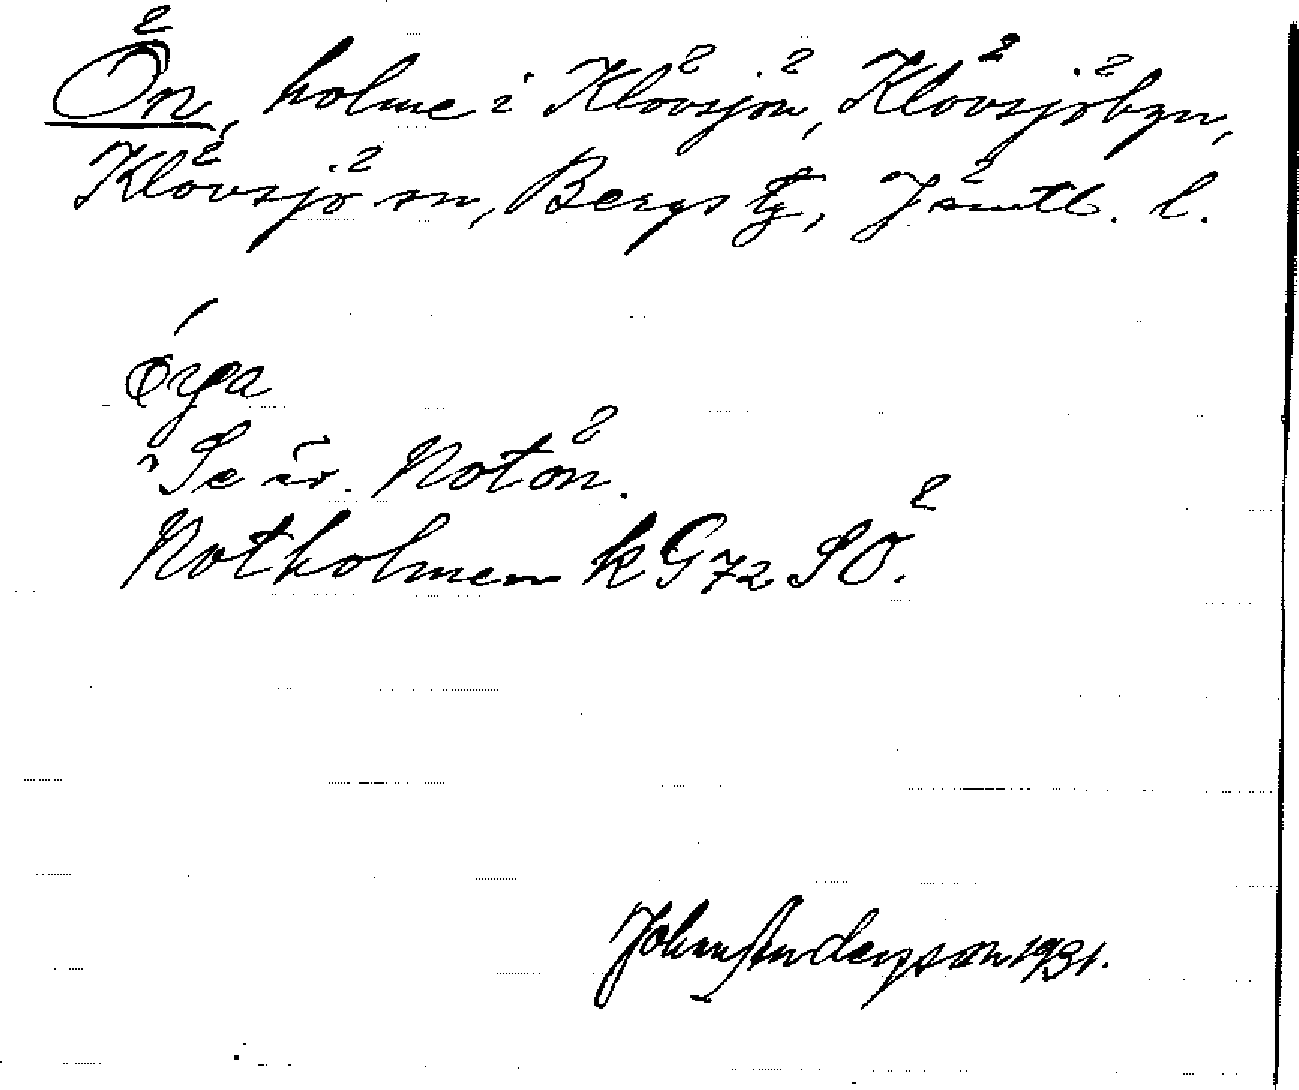 Ön, holme i Klövsjön, Klövsjöbyn,
Klövsjö sn, Bergs tg, Jämtl. l.
Se äv. Notön.
Notholmen kG72 SÖ.
John Anderson 1931.